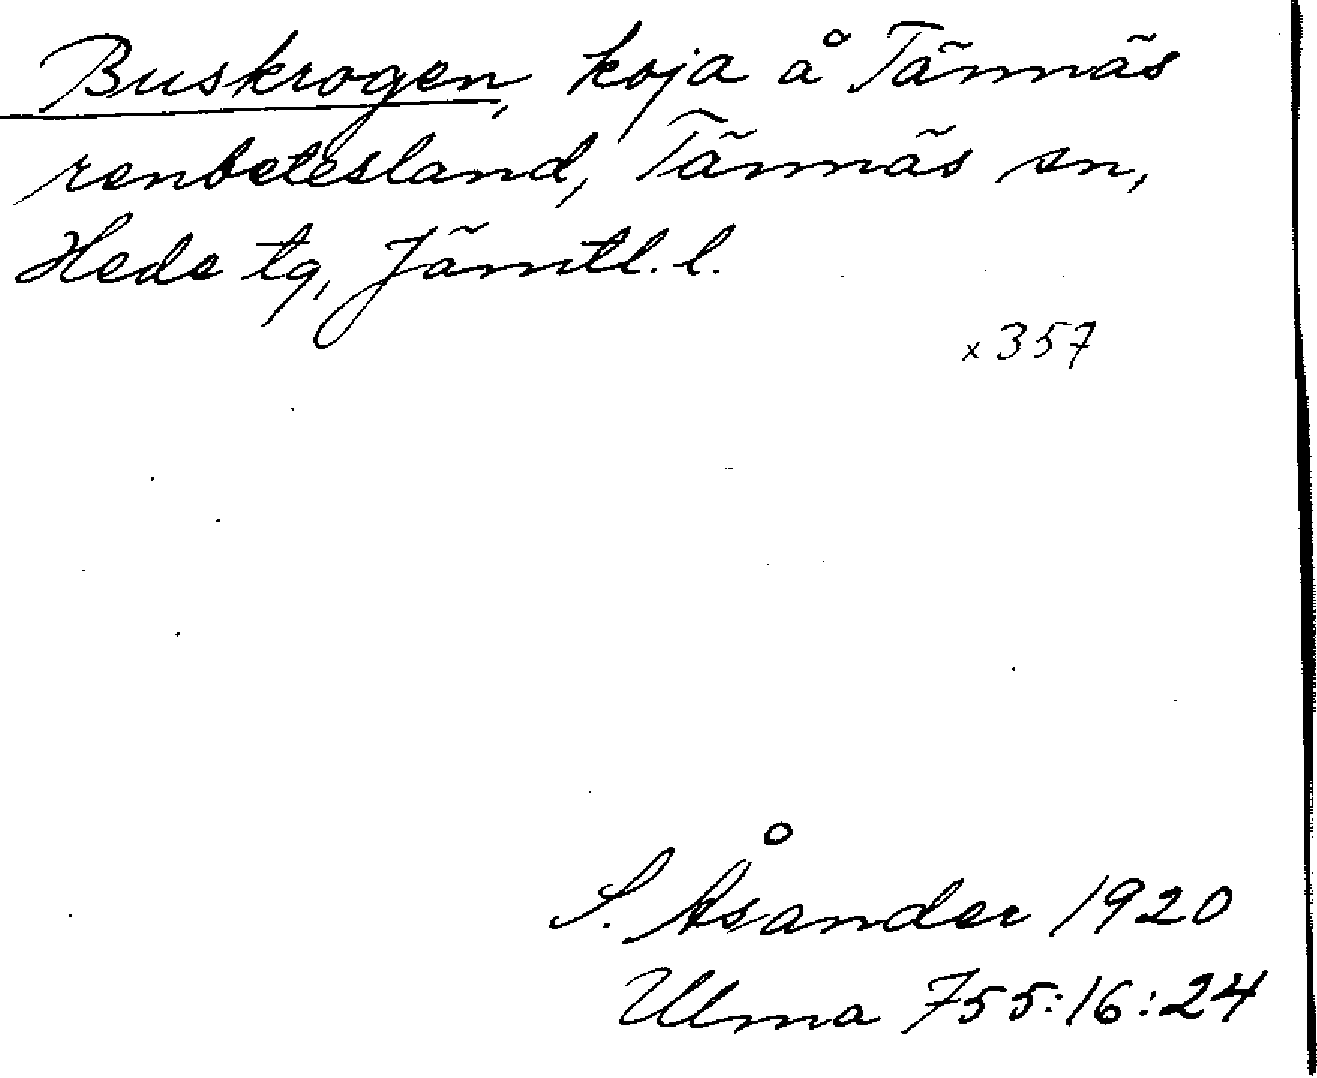 Buskrogen, koja å Tännäs
renbetesland, Tännäs sn,
Hede tg, Jämtl. l.
x 357
S. Åsander 1920
Ulma 755:16:24